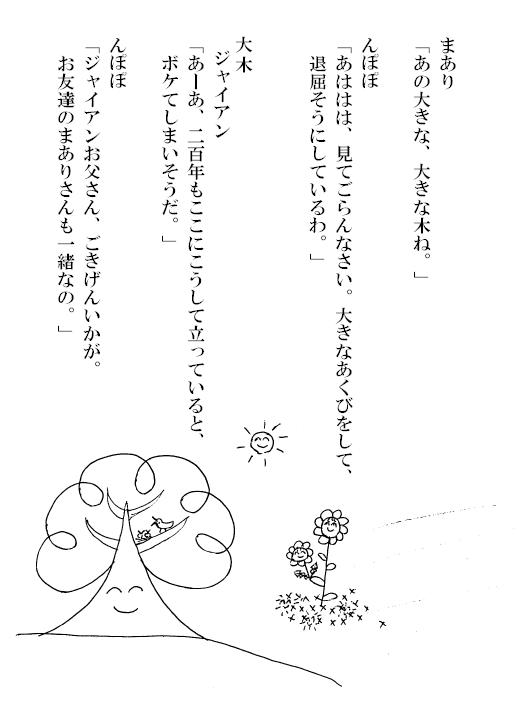 まあり
「あの大きな、大きな木ね。」
んぽぽ
「あははは、見てごらんなさい。大きなあくびをして、
退屈そうにしているわ。」
大木
ジャイアン
「あーあ、二百年もここにこうして立っていると、
ボケてしまいそうだ。」
んぽぽ
「ジャイアンお父さん、ごきげんいかが。
お友達のまありさんも一緒なの。」